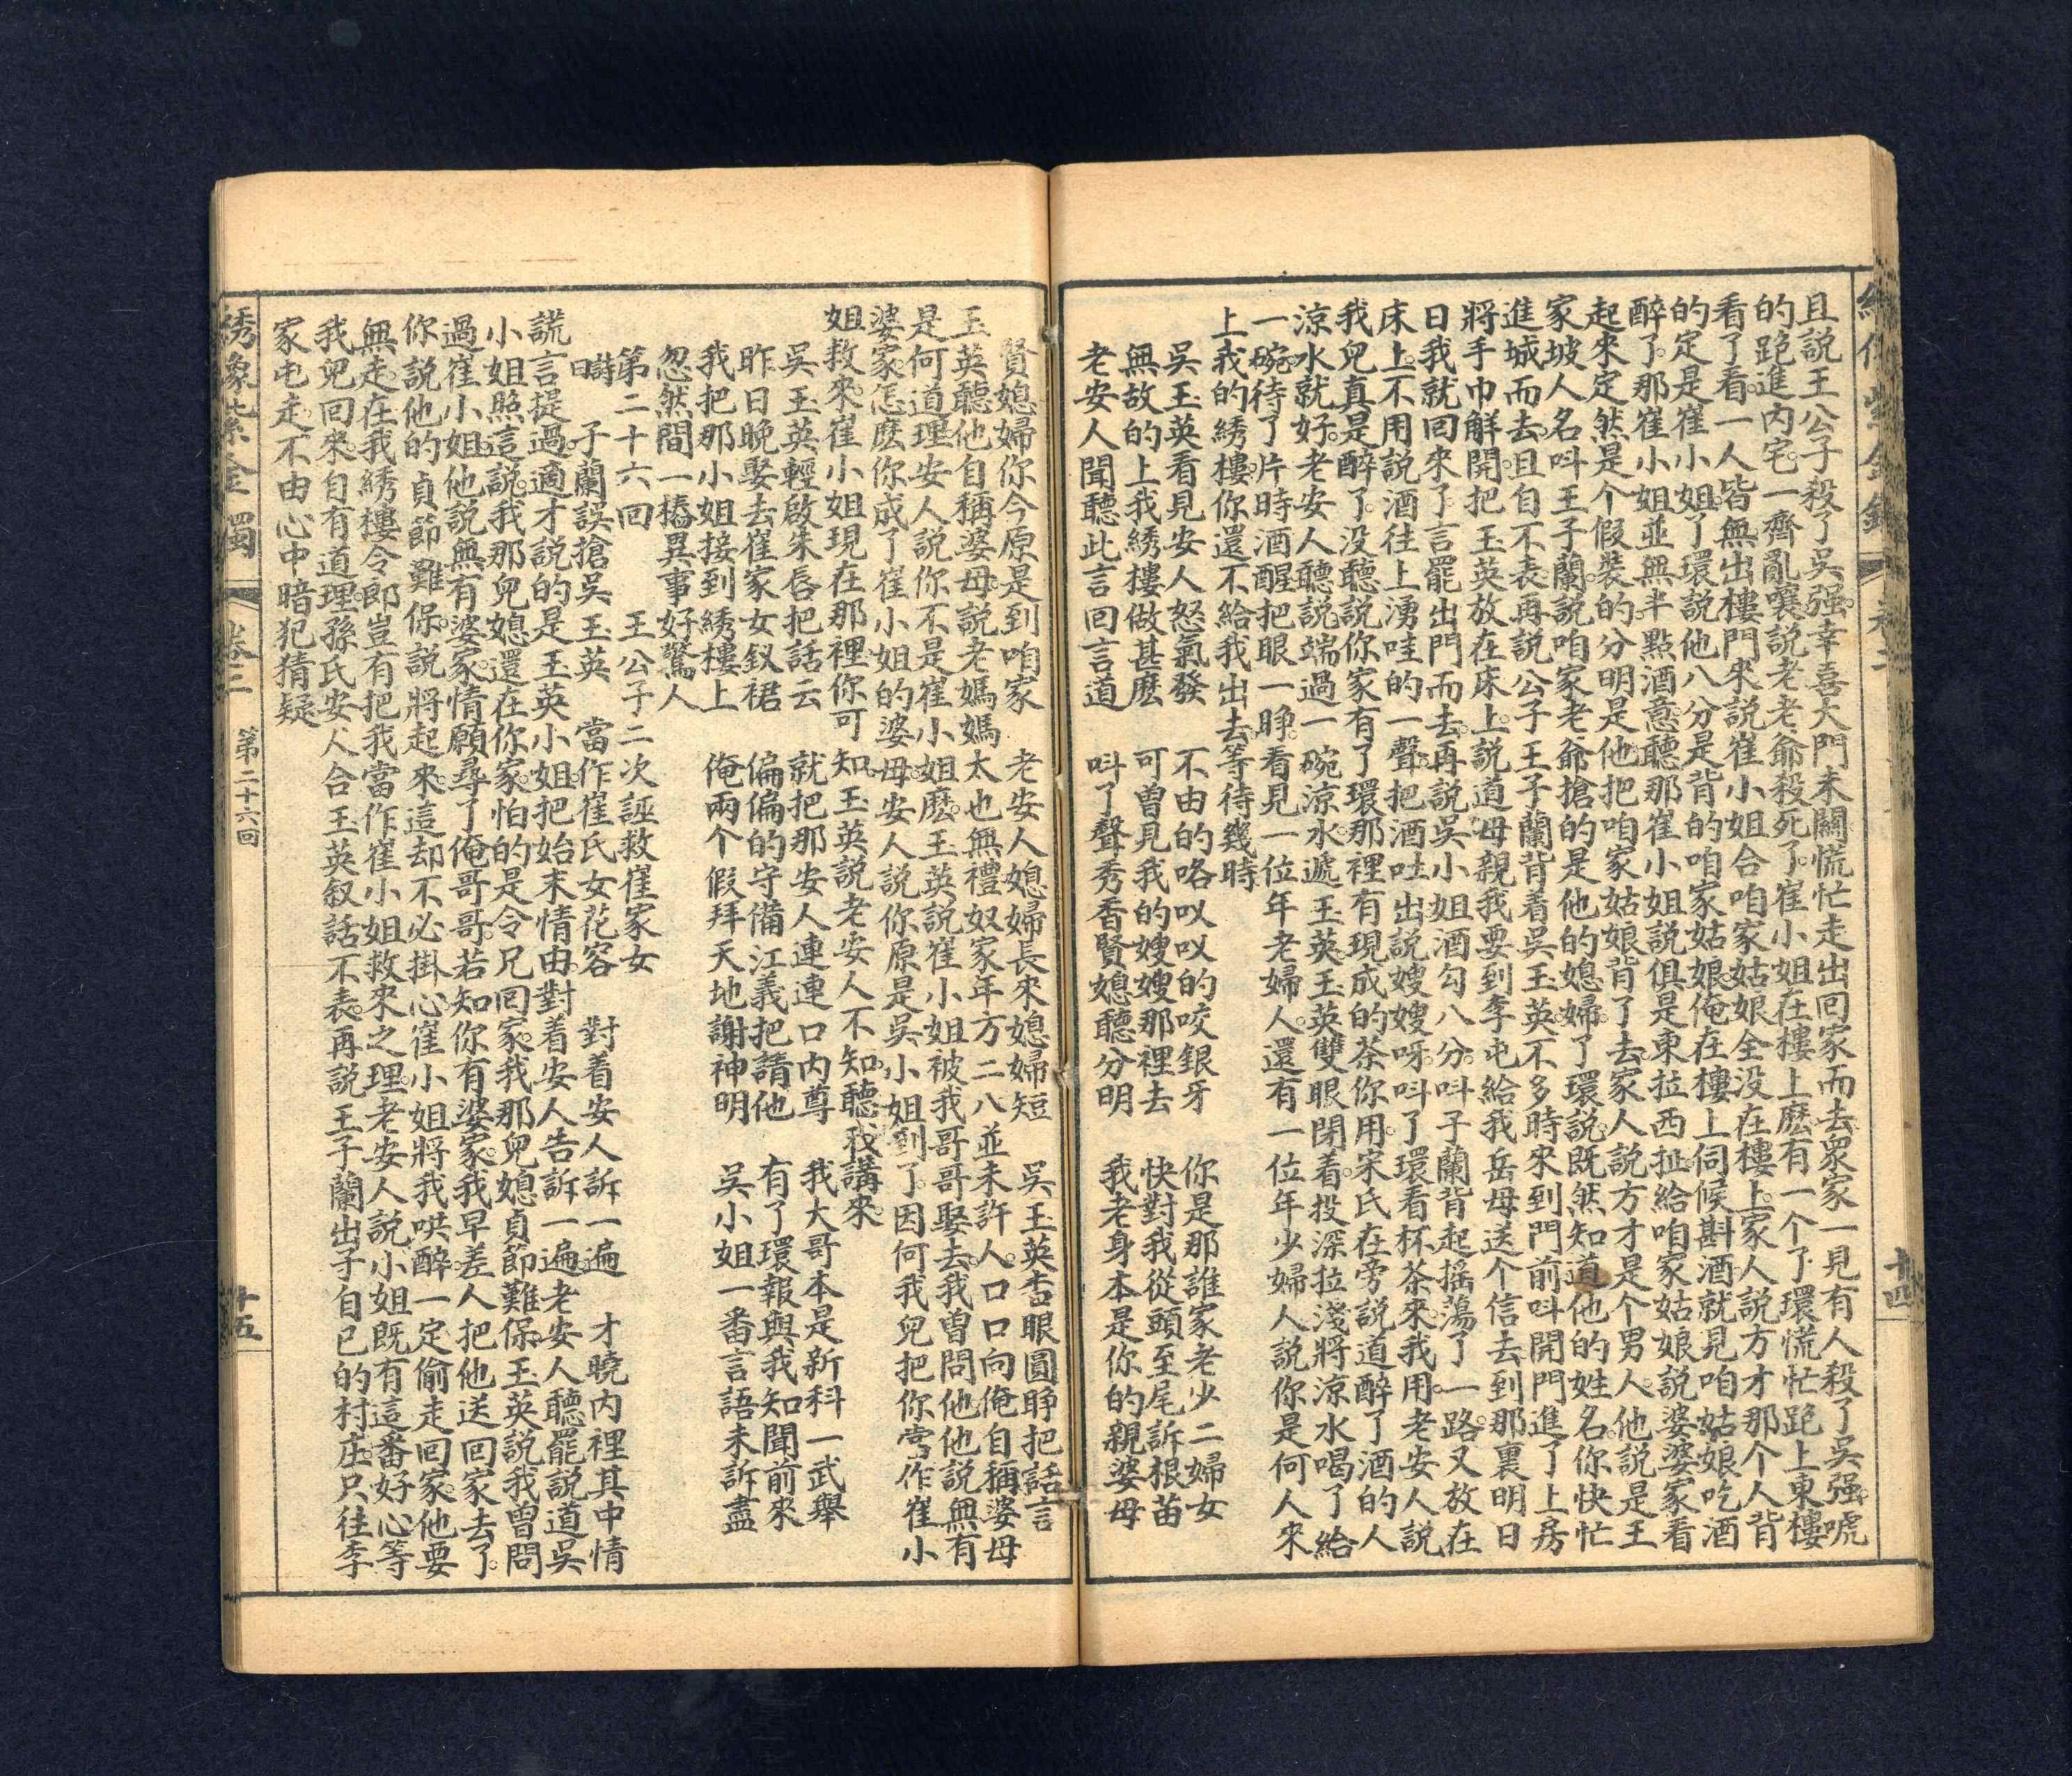 且說王公子殺了吳强幸喜大門未關慌忙走出回家而去衆家一見有人殺了吳强唬
的跑進内宅一齊亂嚷說老老爺殺死了崔小姐在樓上麽有一个丫環慌忙跑上東樓
看了看一人皆無出樓門來說崔小姐合咱家姑娘全没在樓上家人說方才那个人背
的定是崔小姐了環說他八分是背的咱家姑娘俺在樓上伺候斟酒就見咱姑娘吃酒
醉了那崔小姐並無半點酒意聽那崔小姐說俱是東拉西扯給咱家姑娘說婆婆家看
起來定然是个假裝的分明是他把咱家姑娘背了去家人說方才是个男人他說是王
家坡人名呌王子蘭說咱家老爺搶的是他的媳婦了環說既然知道他的姓名你快忙
進城而去且自不表再說公子王子蘭背着吳玉英不多時來到門前呌開門進了上房
將手巾解開把玉英放在床上說道母親我要到李屯給我岳母送个信去到那裏明日
日我就回來了言罷出門而去再說吳小姐酒勾八分呌子蘭背起搖蕩了一路又放在
床上不用說酒往上湧哇的一聲把酒吐出說嫂嫂呀呌了環看杯茶來我用老安人說
我兒真是醉了没聽說你家有了環那裡有現成的茶你用宋氏在旁說道醉了酒的人
涼水就好老安人聽說端過一碗涼水遞玉英玉英雙眼閉着投深拉淺將涼水喝了給
一碗待了片時酒醒把眼一睁看見一位年老婦人還有一位年少婦人說你是何人來
上我的綉樓你還不給我出去等待幾時
吳玉英看見安人怒氣發　不由的咯吺吺的咬銀牙　你是那誰家老少二婦女
無故的上我綉樓做甚麽　可曾見我的嫂嫂那裡去　快對我從頭至尾訴根苗
老安人聞聽此言回言道　呌了聲秀香賢媳聽分明　我老身本是你的親婆母
十四
賢媳婦你今原是到咱家　老安人媳婦長來媳婦短　吳玉英杏眼圓睁把話言
玉英聽他自稱婆母說老媽媽太也無禮奴家年方二八並未許人口口向俺自稱婆母
是何道理安人說你不是崔小姐麽玉英說崔小姐被我哥哥娶去我曾問他他說無有
婆家怎麽你成了崔小姐的婆母安人說你原是吳小姐到了因何我兒把你當作崔小
姐救來崔小姐現在那裡你可知玉英說老安人不知聽我講來
吳玉英輕啟朱唇把話云　就把那安人連連口内尊　我大哥本是新科一武舉
昨日晚娶去崔家女釵裙　偏偏的守備江義把請他　有了環報與我知聞前來
我把那小姐接到綉樓上　俺兩个假拜天地謝神明　吳小姐一番言語未訴盡
忽然間一樁異事好驚人
第二十六回　王公子二次誆救崔家女
詩曰　子蘭誤搶吳玉英　當作崔氏女花容　對着安人訴一遍　才曉内裡其中情
謊言提過適才說的是玉英小姐把始末情由對着安人告訴一遍老安人聽罷說道吳
小姐照言說我那兒媳還在你家怕的是令兄回家我那兒媳貞節難保玉英說我曾問
過崔小姐他說無有婆家情願尋了俺哥哥若知你有婆家我早差人把他送回家去了
你說他的貞節難保說將起來這却不必掛心崔小姐將我哄醉一定偷走回家他要
無走在我綉樓令郎豈有把我當作崔小姐救來之理老安人說小姐既有這番好心等
我兒回來自有道理孫氏安人合玉英叙話不表再說王子蘭出子自已的村庄只往李
家屯走不由心中暗犯猜疑
綉象紫金鐲　卷三　第二十六回　十五